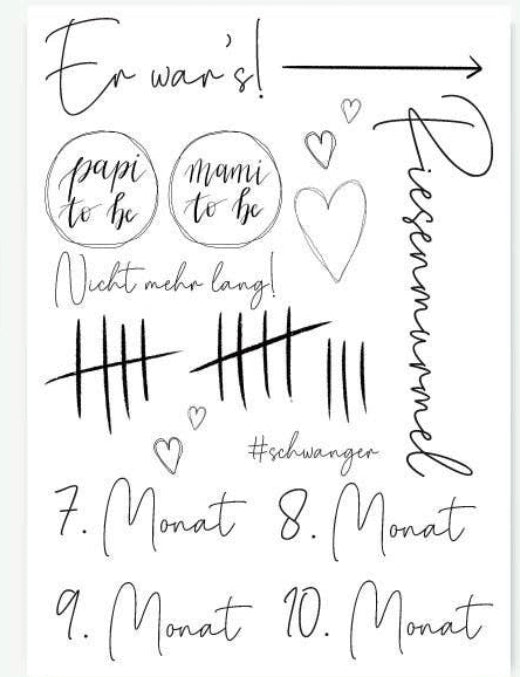 Er war's!
Riesenmurmel
papi
to be
mami
to be
Nicht mehr lang!
#schwanger
7. Monat
8. Monat
9. Monat
10. Monat